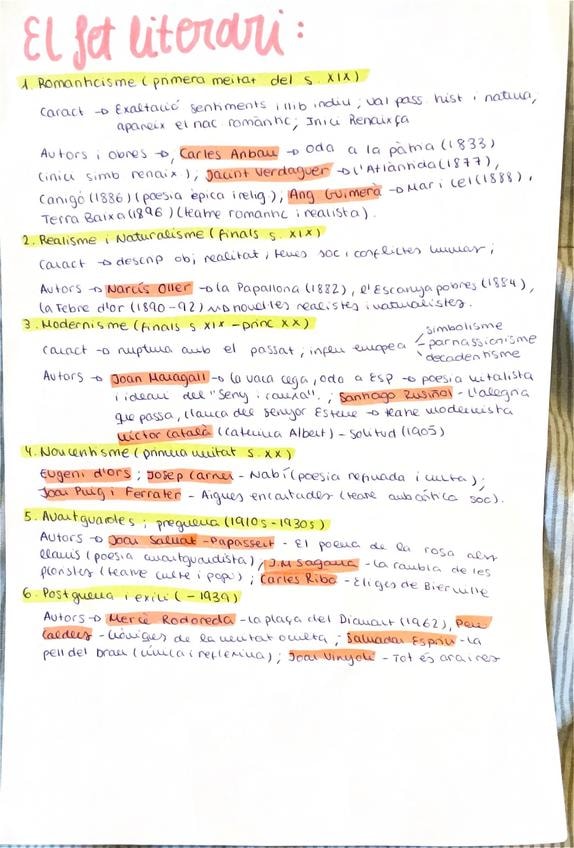 El fet literari:
1. Romanticisme (primera meitat del s. XIX)
Caract → Exaltació sentiments i llib indiv; val pass hist i natura;
apareix el nac romàntic; Inici Renaixça
Autors i obres →, Carles Aribau → oda a la pàtria (1833)
(inici simb renaix), Jacint Verdaguer → L'Atlàntida (1877),
Canigó (1886) (poesia èpica i relig), Àng Guimerà → Mar i Cel (1888),
Terra Baixa (1896) (teatre romàntic i realista).
2. Realisme i Naturalisme (finals s. XIX)
Caract → descrip obj realitat, temes soc i conflictes humans;
Autors → Narcís Oller → la Papallona (1882), l'Escanyapobres (1884),
la Febre d'or (1890-92) → novel·les realistes i naturalistes.
3. Modernisme (finals s XIX - princ XX)
simbolisme
caract → ruptura amb el passat, influ europea parnassionisme
decadentisme
Autors → Joan Maragall → la vaca cega, oda a ESP → poesia vitalista
i ideari del "seny i rauxa".; Santiago Rusiñol - L'alegria
que passa, l'auca del senyor Esteve → teatre modernista
Víctor Català (Caterina Albert) - Solitud (1905)
4. Noucentisme (primera meitat s. XX)
Eugeni d'Ors; Josep Carner - Nabí (poesia refinada i culta);
Joan Puig i Ferrater - Aigües encantades (teatre amb crítica soc).
5. Avantguardes i preguerra (1910s-1930s)
Autors → Joan Salvat-Papasseit - El poema de la rosa als
llavis (poesia avantguardista), J.M Sagarra - la rambla de les
floristes (teatre culte i pop); Carles Riba - Elegies de Bierville
6. Postguerra i exili (-1939)
Autors → Mercè Rodoreda - la plaça del Diamant (1962), Pere
Calders - Cròniques de la veritat oculta; Salvador Espriu - la
pell de brau (lírica i reflexiva); Joan Vinyoli - Tot és ara i res